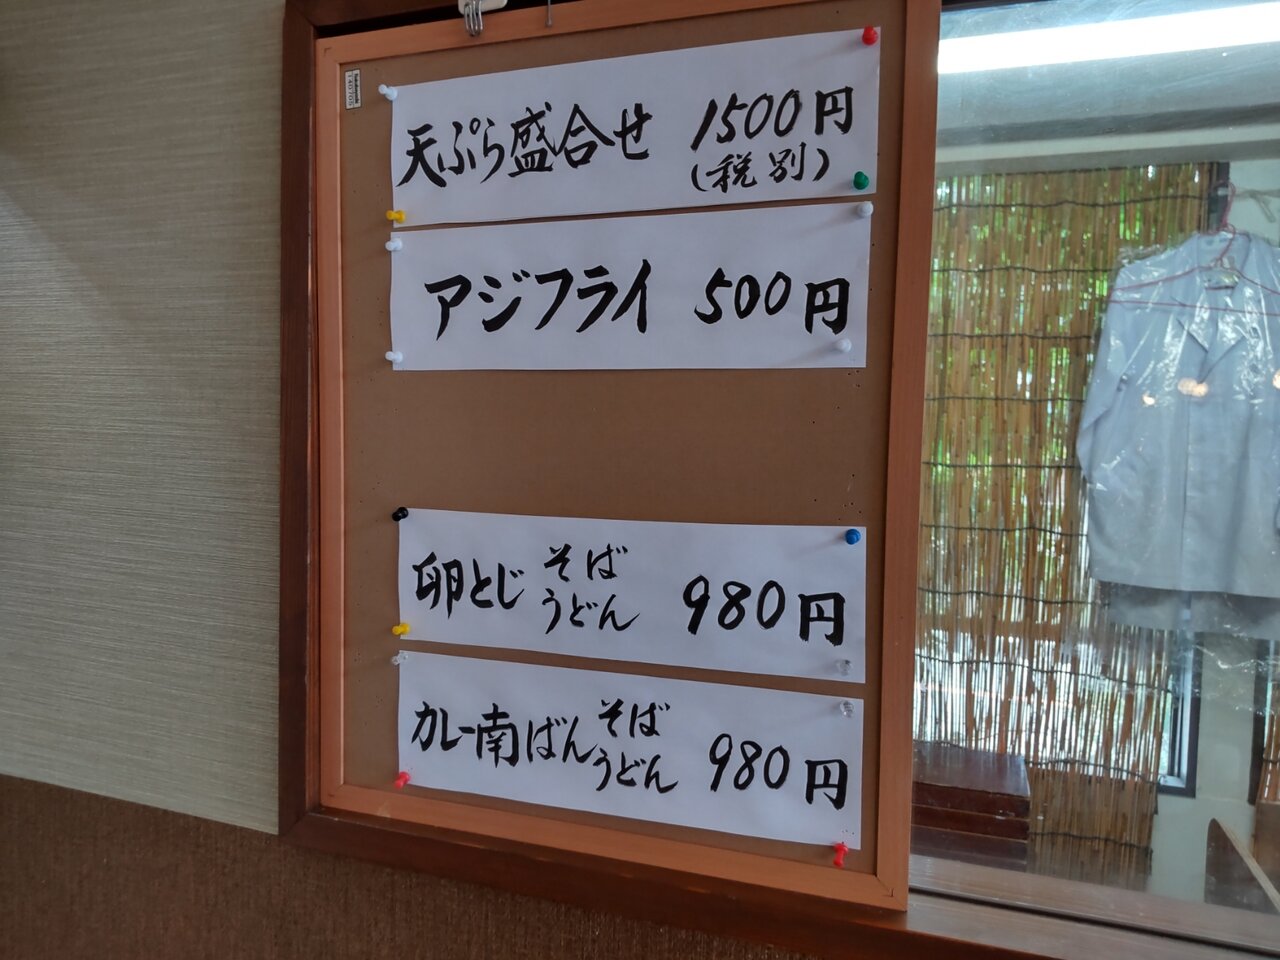 天ぷら盛合せ 1500円
(税別)
アジフライ 500円
卵とじ そば うどん 980円
カレー南ばん そば うどん 980円